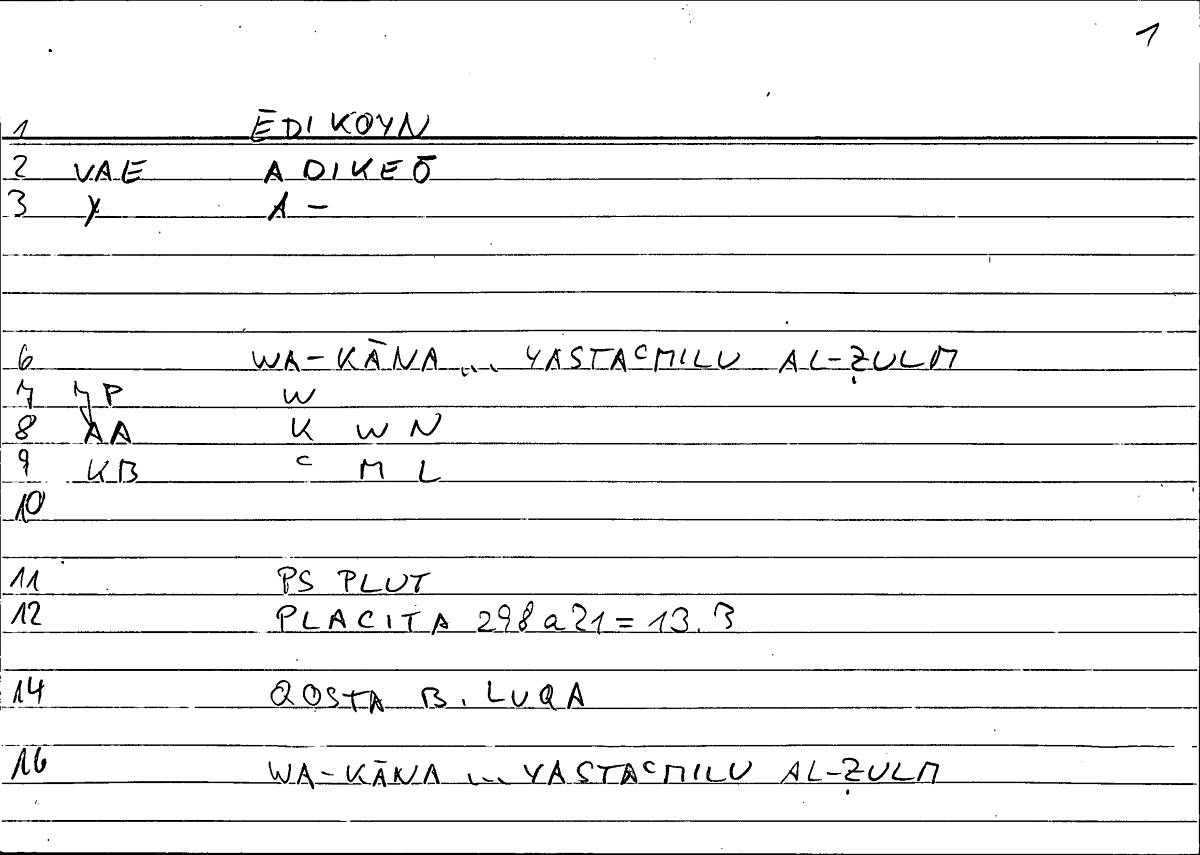 1
1 ĒDIKOYN
2 VAE ADIKEŌ
3 Y A –
6 WA-KĀNA ... YASTAᶜMILU AL-ẒULM
7 YP W
8 AA K W N
9 KB ᶜ M L
10
11 PS PLUT
12 PLACITA 298a21 = 13.3
14 QOSTA B. LUQA
16 WA-KĀNA ... YASTAᶜMILU AL-ẒULM